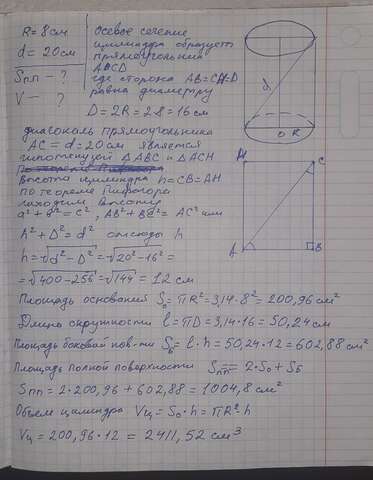 R = 8 см
d = 20 см
Sпп - ?
V - ?
Осевое сечение
цилиндра образует
прямоугольник
ABCD
где сторона AB=CH=D
равна диаметру
D = 2R = 2·8 = 16 см
диагональ прямоугольника
AC = d = 20 см является
гипотенузой ΔABC и ΔACH
Высота цилиндра h = CB = AH
по теореме Пифагора
находим высоту
a² + b² = c², AB² + BC² = AC² или
h² + D² = d² отсюда h
h = √d² - D² = √20² - 16² =
= √400 - 256 = √144 = 12 см
Площадь основания S₀ = πR² = 3,14·8² = 200,96 см²
Длина окружности l = πD = 3,14·16 = 50,24 см
Площадь боковой пов-ти Sб = l·h = 50,24·12 = 602,88 см²
Площадь полной поверхности Sпп = 2·S₀ + Sб
Sпп = 2·200,96 + 602,88 = 1004,8 см²
Объем цилиндра Vц = S₀·h = πR²·h
Vц = 200,96·12 = 2411,52 см³
d
O R
H C
A B